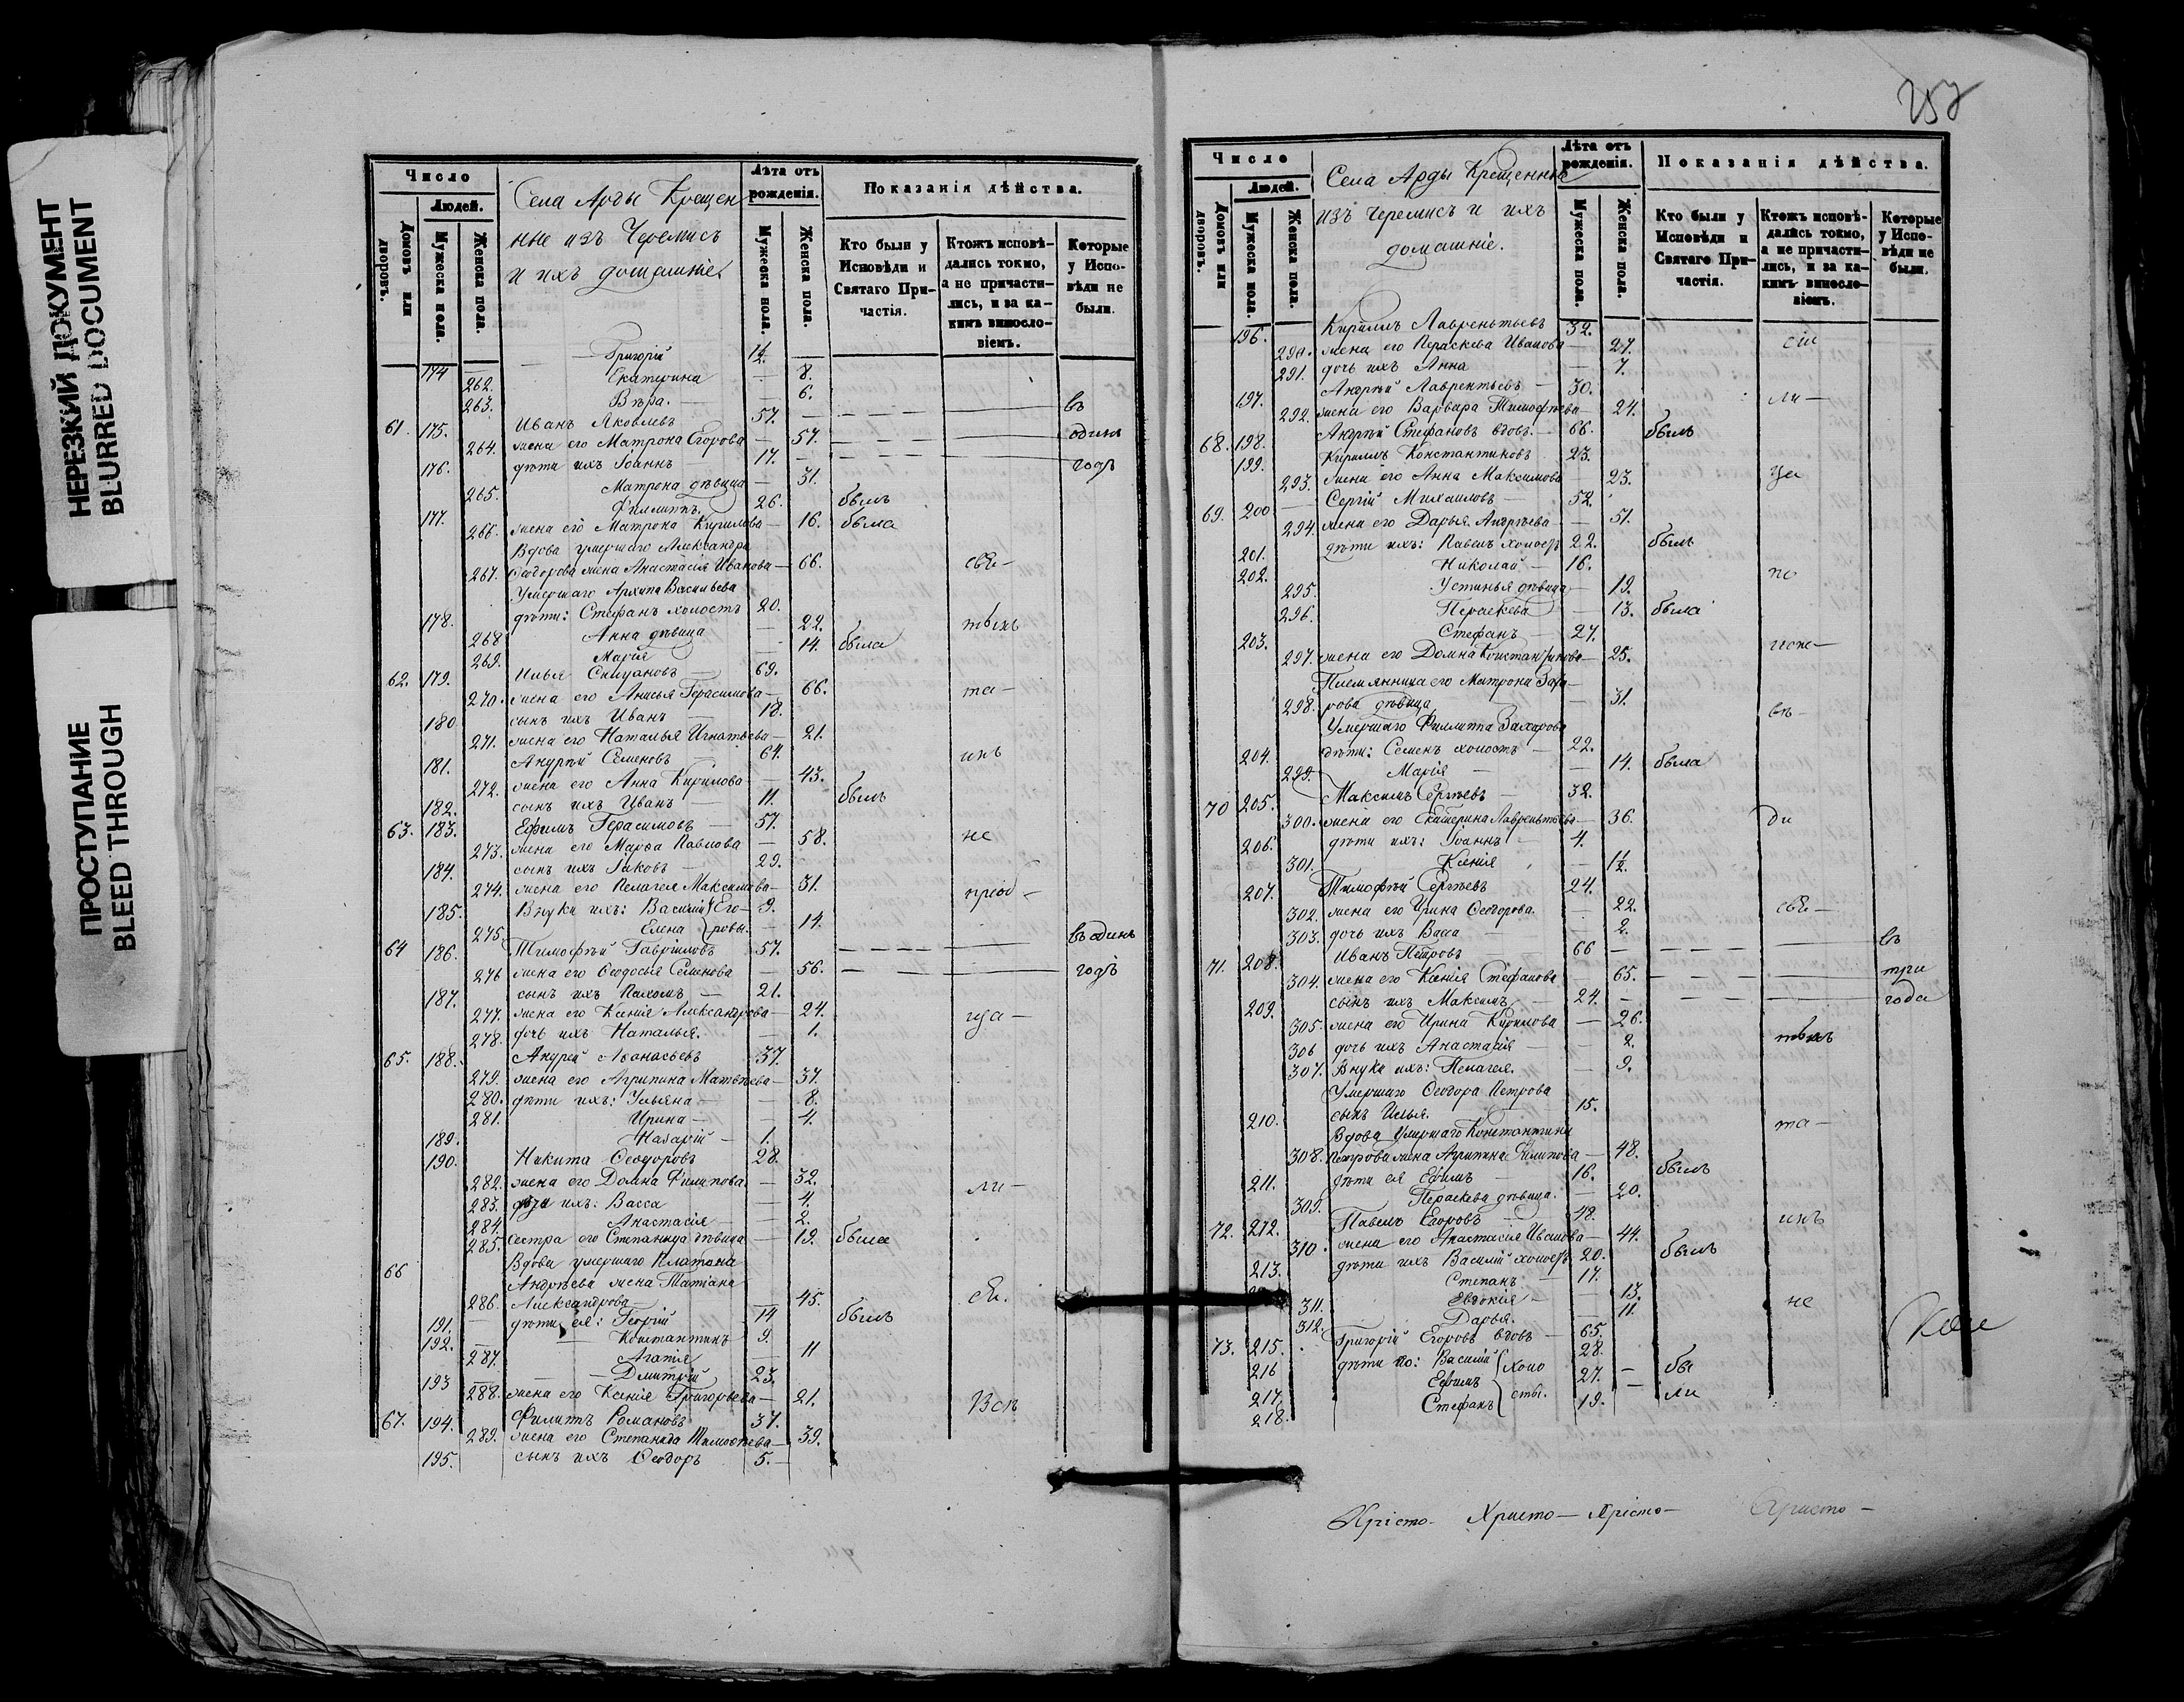 НЕРЕЗКИЙ ДОКУМЕНТ
BLURRED DOCUMENT
ПРОСТУПАНИЕ
BLEED THROUGH
Число
Людей.
Домовъ или дворовъ.
Мужеска пола.
Женска пола.
Села Арды Крещен
ные изъ Черемисъ
и ихъ домашніе
Лѣта отъ рожденія.
Мужеска пола.
Женска пола.
Показанія дѣйства.
Кто были у Исповѣди и Святаго Причастія.
Ктожъ исповѣдались токмо, а не причастились, и за какимъ винословіемъ.
Которые у Исповѣди не были.
174 Григорій 1/2
262. Екатерина — 8.
263. Вѣра. — 6.
61. 175. Иванъ Яковлевъ 57. — въ
264. жена его Матрона Егорова — 57. — одинъ
176. дѣти ихъ Іоаннъ — 17. — годъ
265. Матрона дѣвица — 31.
177. Филиппъ, 26. былъ
266. жена его Матрона Кирилова — 16. была
Вдова умершаго Александра
267. Ѳеодорова жена Анастасія Иванова — 66. свя—
Умершаго Архипа Васильева
178. дѣти: Стефанъ холостъ 20.
268 Анна дѣвица — 22. тыхъ
269. Марія — 14. была
62. 179. Илья — 69.
270. жена его Анисья Герасимова — 66. та—
180 сынъ ихъ Иванъ — 18.
271. жена его Наталья Игнатьева — 21.
181. Андрей Семеновъ 64. инъ
272. жена его Анна Кирилова — 43.
182. сынъ ихъ Иванъ — 11. былъ
63. 183. Ефимъ Герасимовъ — 57.
273. жена его Марѳа Павлова — 58. не
184. сынъ ихъ Іаковъ — 29.
274. жена его Пелагея Максимова — 31. пріоб—
185. Внуки ихъ: Василій Его— 9.
275. Елена ровы. — 14.
64 186. Тимофѣй Гавриловъ 57. — въ одинъ
276 жена его Ѳеодосья Семенова — 56. — годъ
187. сынъ ихъ Пахомъ — 21.
277. жена его Ксенія Александрова — 24. ща—
278. дочь ихъ Наталья. — 1.
65. 188. Андрей Аѳонасьевъ 37.
279. жена его Агрипина Матвѣева — 37.
280. дѣти ихъ: Ульяна — 8.
281. Ирина — 4.
189. Назарій — 1.
190. Никита Ѳеодоровъ 28.
282. жена его Домна Филипова — 32. ли—
283. ихъ: Васса — 4.
284. Анастасія — 2.
285. сестра его Степанида дѣвица — 19. была
66 Вдова умершаго Платона
Андрѣева жена Татіана
286. Александрова — 45. Св.
191. дѣти ея: Георгій — 14 былъ
192. Константинъ 9.
287. Агапія — 11
193 Дмитрій 23.
288. жена его Ксенія Григорьева — 21. Всѣ
67. 194. Филипъ Романовъ 37.
289. жена его Степанида Тимоѳѣева — 39.
195. сынъ ихъ Ѳеодоръ 5. —
257
Число
Людей.
Домовъ или дворовъ.
Мужеска пола.
Женска пола.
Села Арды Крещенные
изъ черемисъ и ихъ
домашніе.
Лѣта отъ рожденія.
Мужеска пола.
Женска пола.
Показанія дѣйства.
Кто были у Исповѣди и Святаго Причастія.
Ктожъ исповѣдались токмо, а не причастились, и за какимъ винословіемъ.
Которые у Исповѣди не были.
196. Кирилъ Лаврентьевъ 32.
290. жена его Параскева Иванова — 27. сіи
291. дочь ихъ Анна — 7.
197. Андрей Лаврентьевъ — 30.
292. жена его Варвара Тимофѣева — 24. ли—
68. 198. Андрей Стефановъ вдовъ. — 66. былъ
199. Кирилъ Константиновъ 23.
293. жена его Анна Максимова — 23. ща
69. 200 Сергій Михаиловъ — 52.
294. жена его Дарья Андрѣева — 51.
201. дѣти ихъ: Павелъ холостъ 22. былъ
202. Николай — 16.
295. Устинья дѣвица — 19. по
296. Параскева — 13. была
203. Стефанъ — 27.
297. жена его Домна Константинова — 25.
Племянница его Матрона Заха—
298. рова дѣвица — 31.
Умершаго Филиппа Захарова
204. дѣти: Семенъ холостъ — 22.
299. Марія — 14. была
70 205. Максимъ Сергѣевъ — 32.
300. жена его Екатерина Лаврентьева — 36. ди
206. дѣти ихъ: Іоаннъ — 4.
301. Ксенія — 1/2
207. Тимофѣй Сергѣевъ 24.
302. жена его Ирина Ѳеодорова. — 22. свя—
303. дочь ихъ Васса — 2.
71. 208. Иванъ Петровъ 66 — въ
304. жена его Ксенія Стефанова — 65. — три
209. сынъ ихъ Максимъ, — 24. — года
305. жена его Ирина Кирилова — 26.
306 дочь ихъ Анастасія — 2. тыхъ
307. Внука ихъ: Пелагея. — 9.
Умершаго Ѳеодора Петрова
210. сынъ Илья. 15.
Вдова умершаго Константина та—
308. Петрова жена Агрипина Филипова — 48.
211. дѣти ея Ефимъ — 16. былъ
309. Параскева дѣвица. — 20.
72. 212. Павелъ Егоровъ — 48. инъ
310. жена его Анастасія Иванова — 44.
213. дѣти ихъ Василій холостъ 20. былъ
Степанъ — 17.
311. Евдокія — 13. не
312. Дарья. — 11.
73. 215. Григорій Егоровъ вдовъ — 65.
216 дѣти его: Василій холо 28.
217. Ефимъ 27. — бы
218. Стефанъ сты. 19. — ли
Хрісто— Христо— Хрісто— Христо—